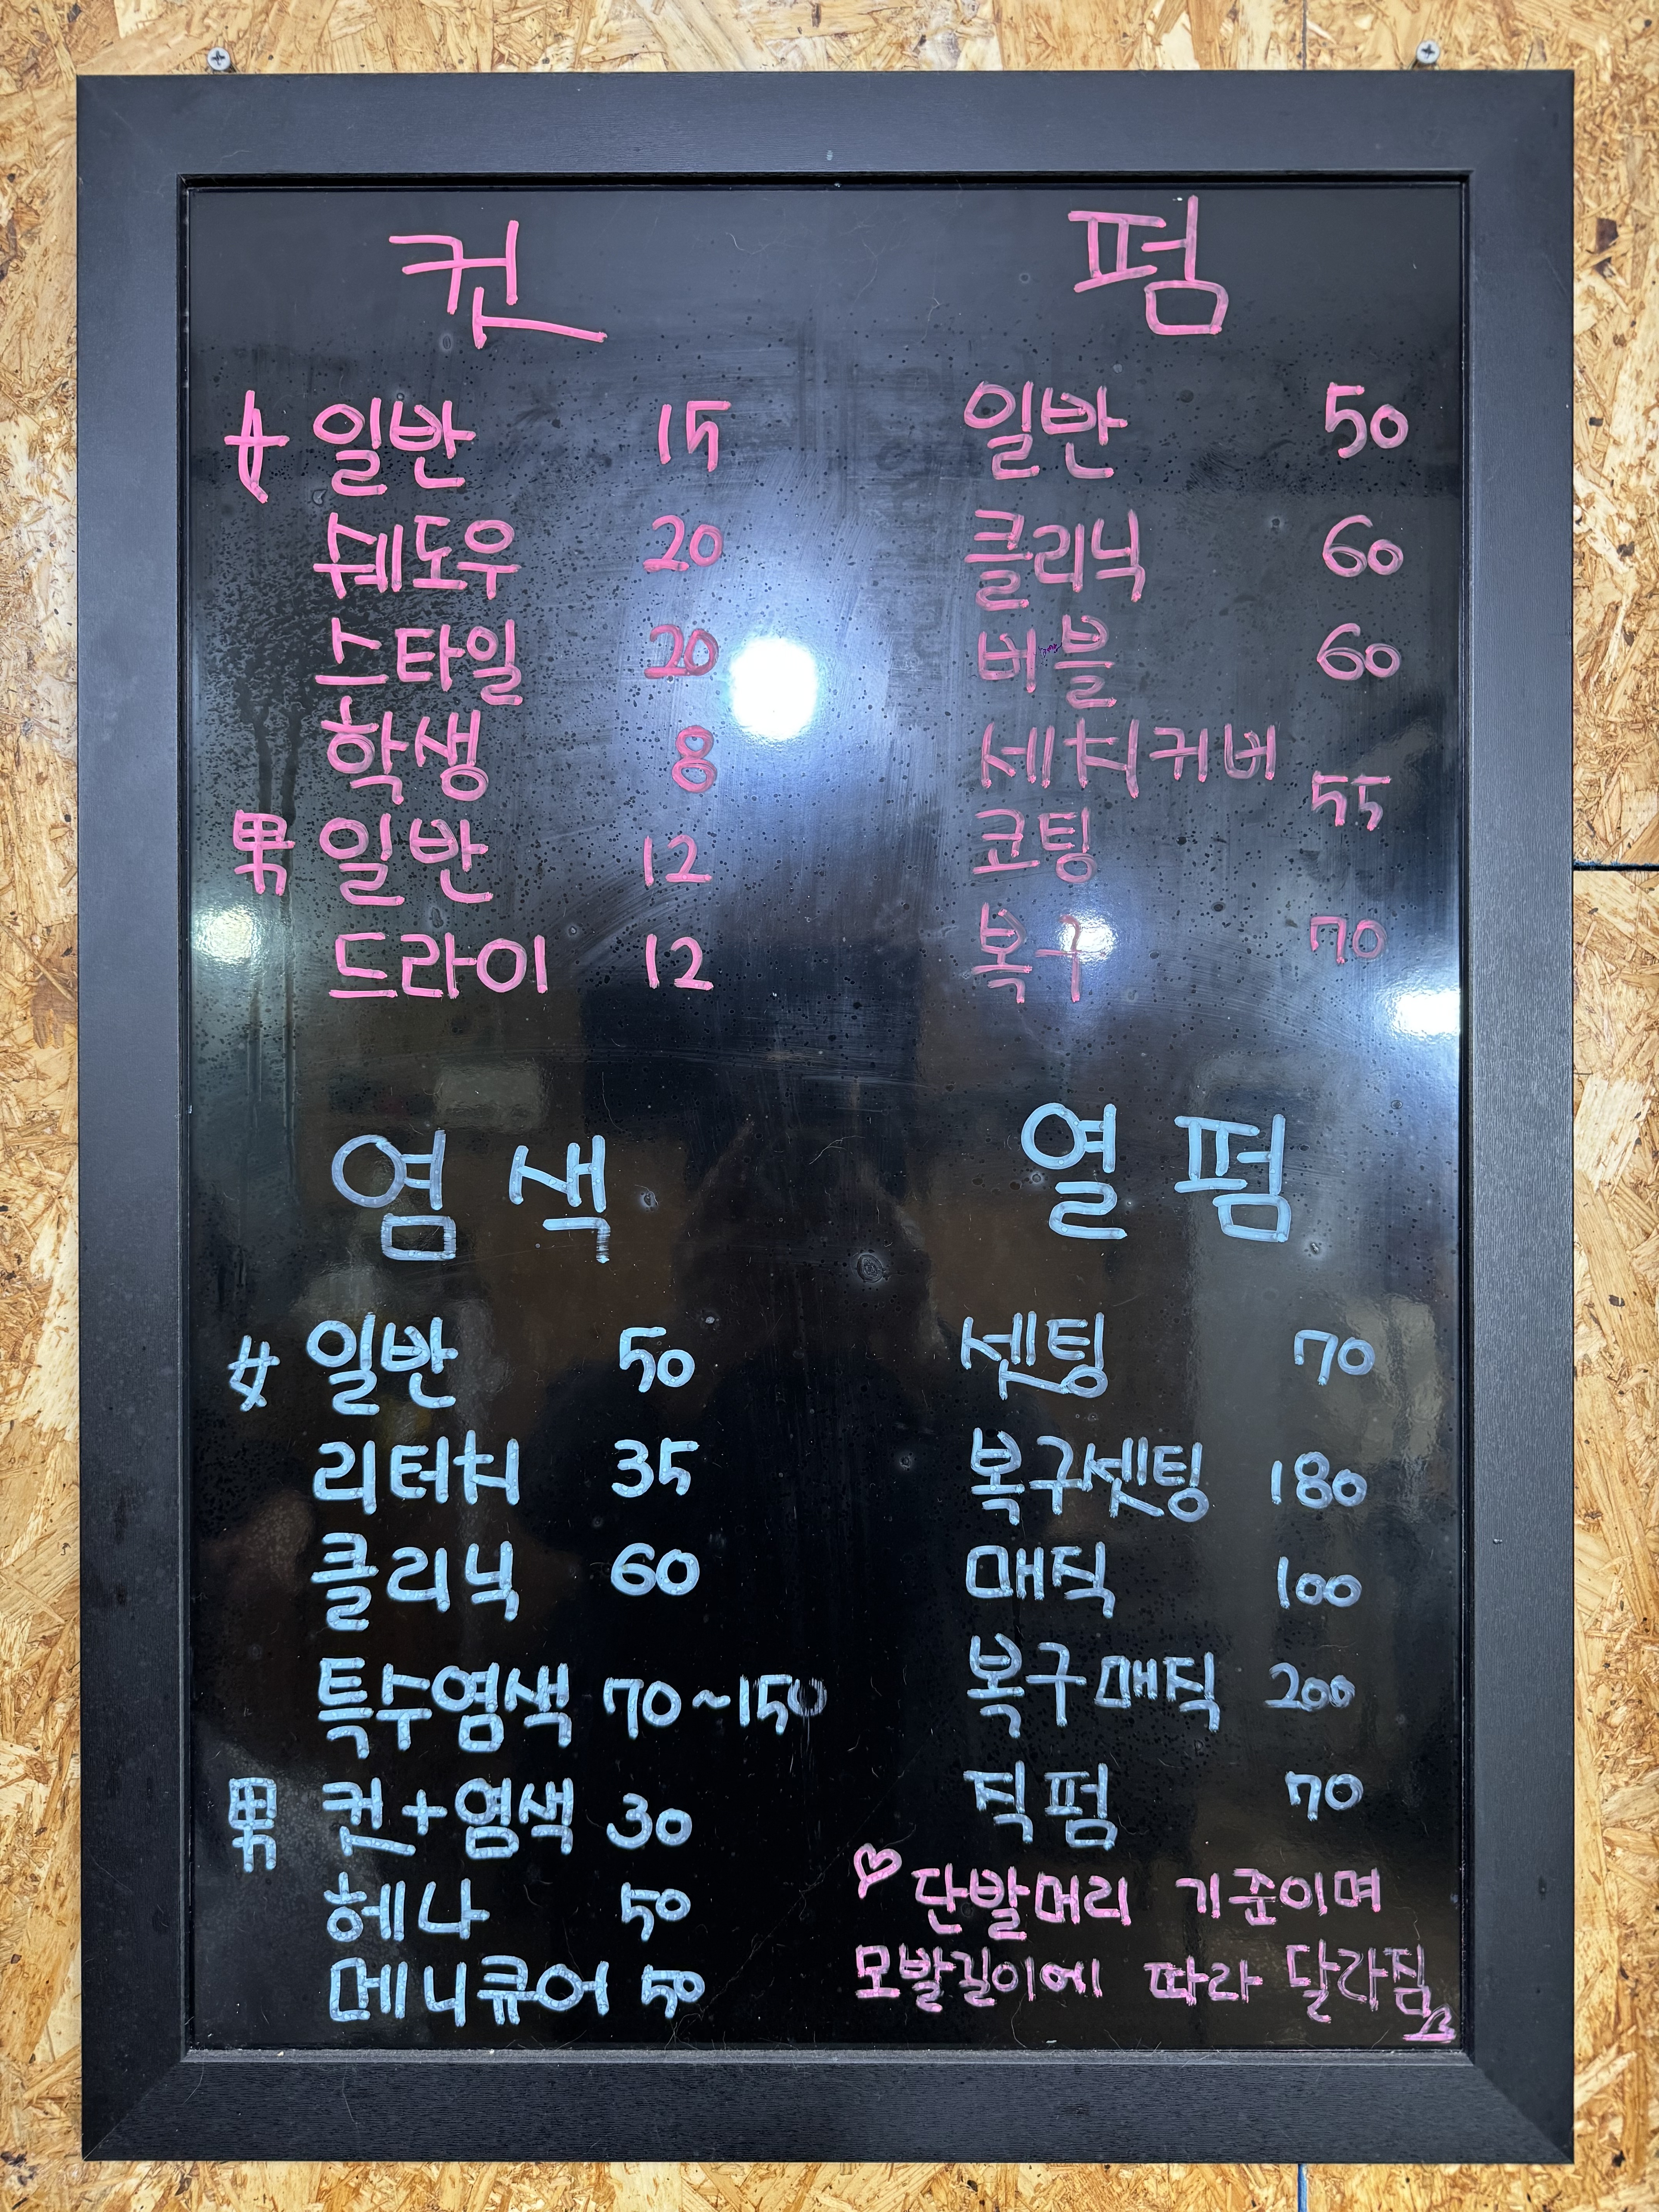 컷
女 일반 15
쉐도우 20
스타일 20
학생 8
男 일반 12
드라이 12
펌
일반 50
클리닉 60
버블 60
세치커버
코팅 55
복구 70
염색
女 일반 50
리터치 35
클리닉 60
특수염색 70~150
男 컷+염색 30
헤나 50
메니큐어 50
열펌
셋팅 70
복구셋팅 180
매직 100
복구매직 200
직펌 70
♡단발머리 기준이며
모발길이에 따라 달라짐